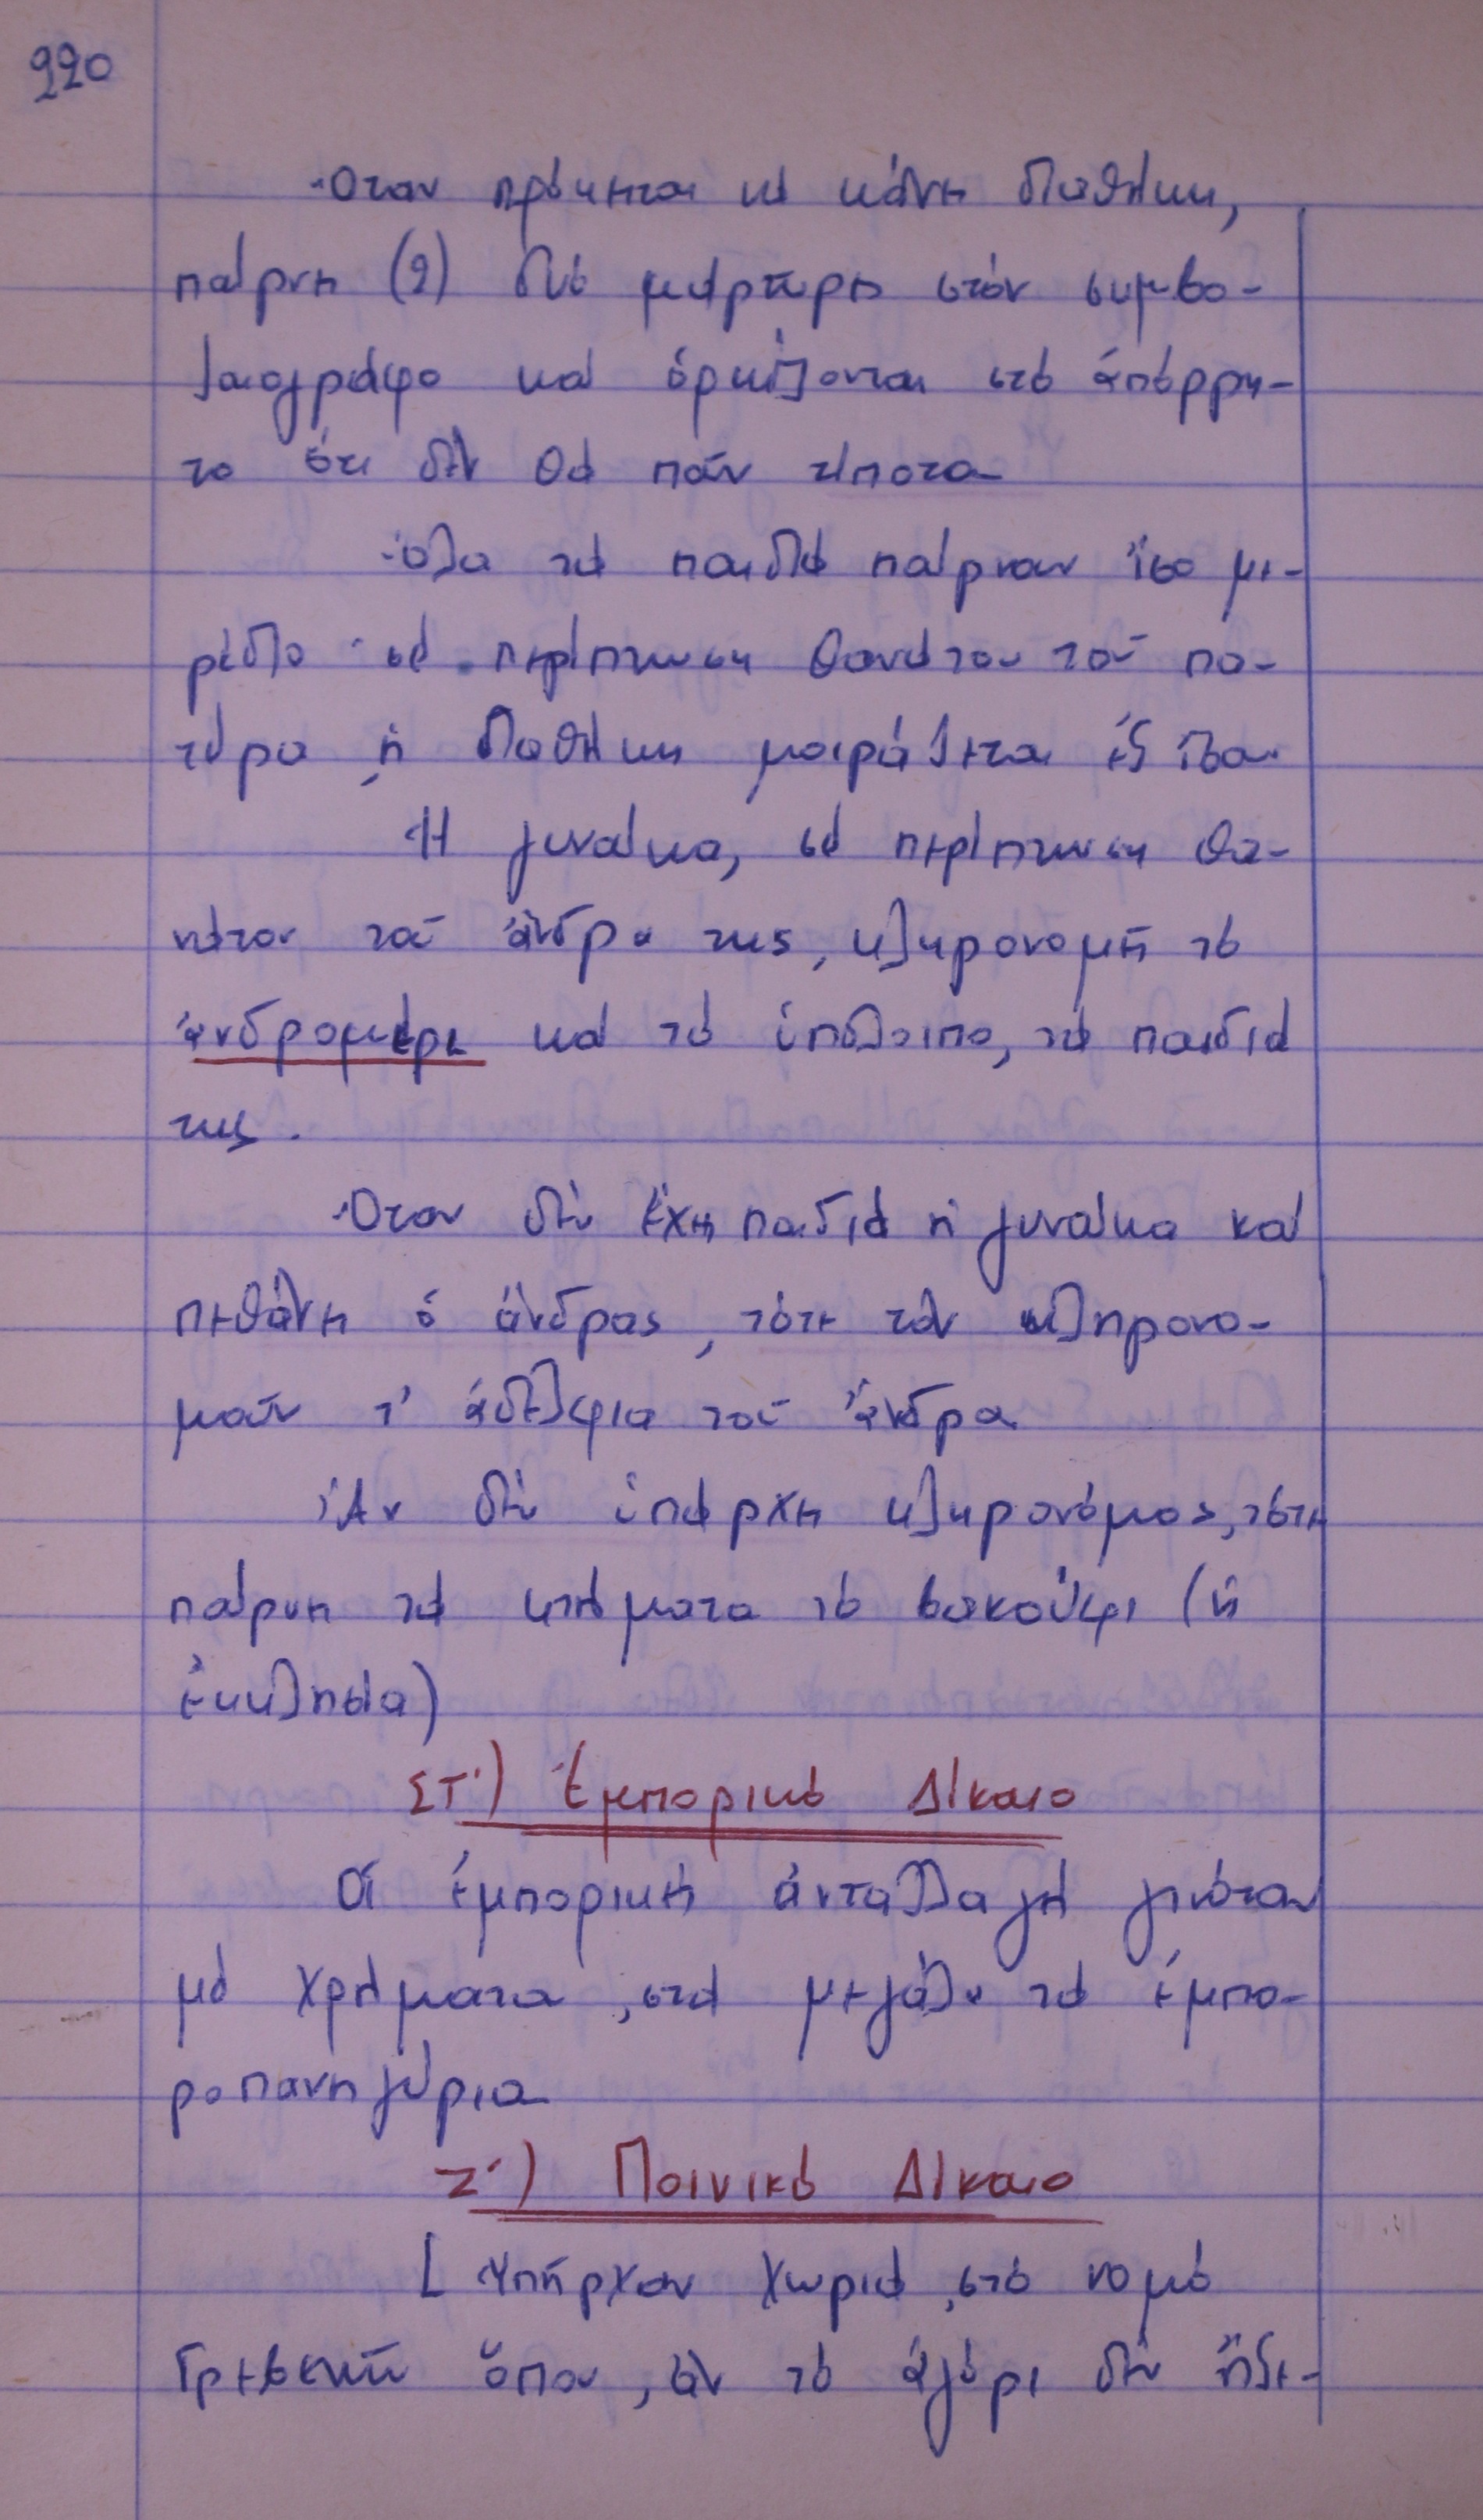 220
Ὅταν πρόκειται νά κάνει διαθήκη,
παίρνει (2) δυό μάρτυρες στόν συμβο-
λαιογράφο καί ὁρκίζονται στό ἀπόρρη-
το ὅτι δέν θά πᾶν τίποτα
Ὅλα τά παιδιά παίρναν ἴσο με-
ρίδιο σέ περίπτωση θανάτου τοῦ πα-
τέρα, ἡ διαθήκη μοιράζεται ἐξ ἴσου.
Ἡ γυναίκα, σέ περίπτωση θα-
νάτου τοῦ ἄνδρα της, κληρονομεῖ τό
ἀνδρομέρι καί τό ὑπόλοιπο, τά παιδιά
της.
Ὅταν δέν ἔχει παιδιά ἡ γυναίκα καί
πεθάνει ὁ ἄνδρας, τότε τόν κληρονο-
μοῦν τ' ἀδέλφια τοῦ ἄνδρα
Ἄν δέν ὑπάρχει κληρονόμος, τότε
παίρνει τά κτήματα τό βακούφι (ἡ
ἐκκλησία)
ΣΤ') Ἐμπορικό Δίκαιο
Οἱ ἐμπορικεί ἀνταλλαγεί γινόταν
μέ χρήματα, στά μεγάλα τά ἐμπο-
ροπανηγύρια
Ζ') Ποινικό Δίκαιο
[ Ὑπῆρχαν χωριά, στό νομό
Γρεβενῶν ὅπου, ἄν τό ἀγόρι δέν ἤξε-